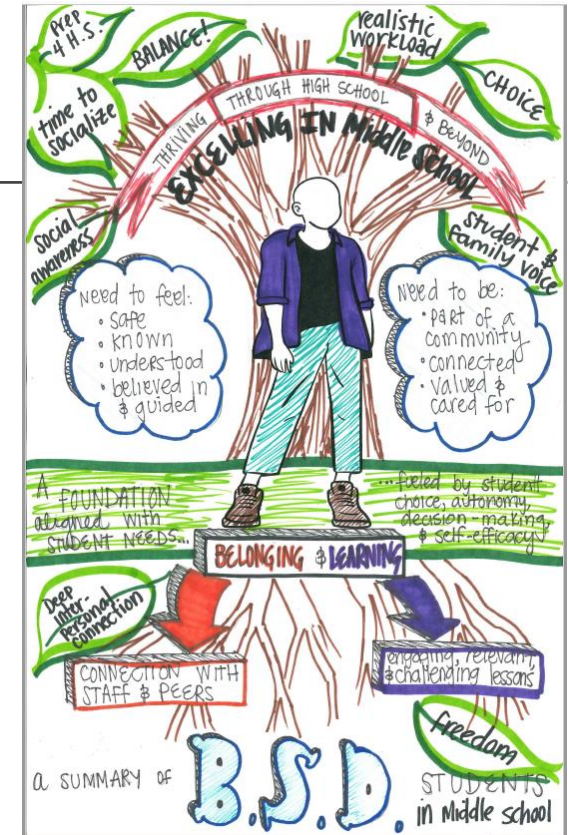 Prep
4 H.S.
BALANCE!
time to
socialize
realistic
workload
CHOICE
THRIVING THROUGH HIGH SCHOOL & BEYOND
EXCELLING IN Middle School
Social
awareness
Student &
family voice
Need to feel:
• safe
• known
• understood
• believed in
& guided
Need to be:
• part of a
community
• connected
• valued &
cared for
A FOUNDATION
aligned with
STUDENT NEEDS...
...fueled by student
choice, autonomy,
decision-making,
& self-efficacy
BELONGING & LEARNING
Deep
inter-
personal
connection
CONNECTION WITH
STAFF & PEERS
engaging, relevant,
& challenging lessons
freedom
a SUMMARY OF B.S.D. STUDENTS
in Middle School